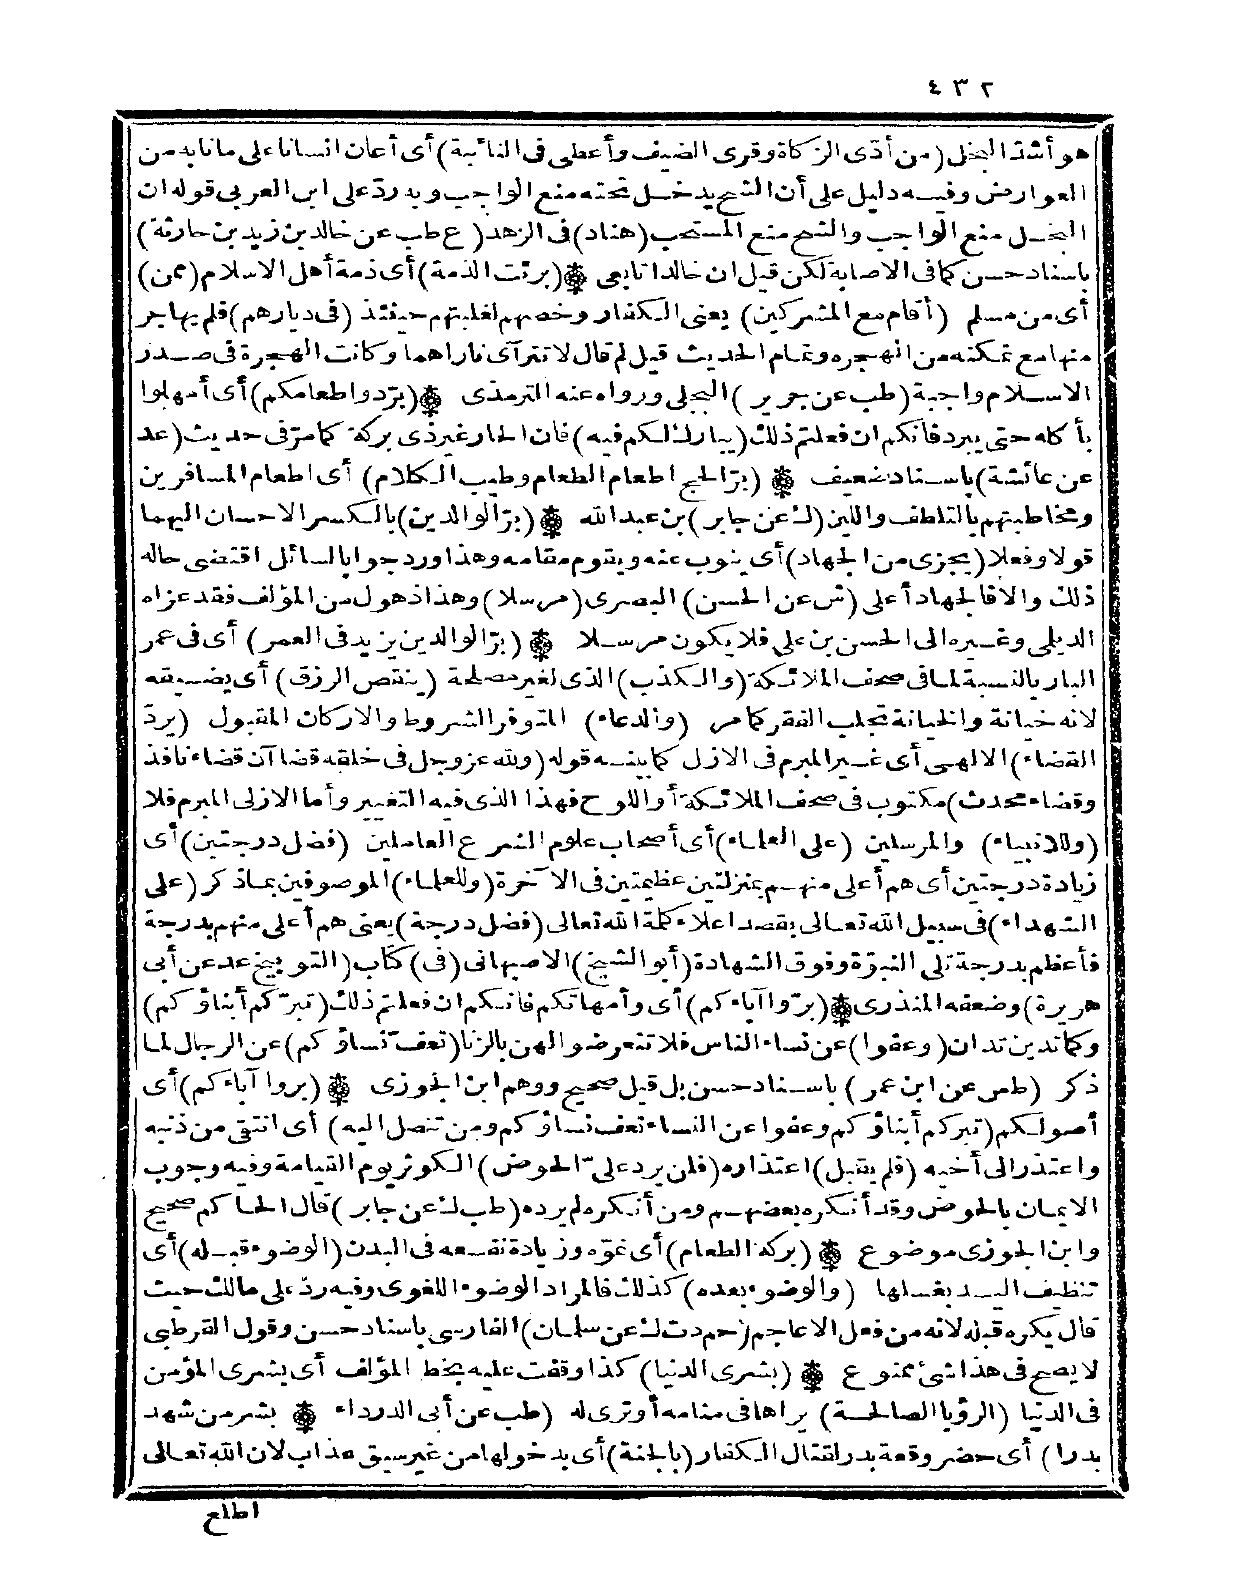 ٤٣٢
هو أشد البخل (من أدى الزكاة وقرى الضيف وأعطى فى النائبة) أى أعان انسانا على ما نابه من
العوارض وفيه دليل على أن الشح يدخل تحته منع الواجب وبه ردّ على ابن العربى قوله ان
البخل منع الواجب والشح منع المستحب (هناد) فى الزهد (ع طب عن خالد بن زيد بن حارثة)
باسناد حسن كما فى الاصابة لكن قيل ان خالدا تابعى ۞ (برئت الذمة) أى ذمة أهل الاسلام (ممن)
أى من مسلم (أقام مع المشركين) يعنى الكفار وخصهم لغلبتهم حينئذ (فى ديارهم) فلم يهاجر
منها مع تمكنه من الهجرة وتمام الحديث قيل لم قال لا تترآى ناراهما وكانت الهجرة فى صدر
الاسلام واجبة (طب عن جرير) البجلى ورواه عنه الترمذى ۞ (برّدوا طعامكم) أى أمهلوا
بأكله حتى يبرد فانكم ان فعلتم ذلك (يبارك لكم فيه) فان الحار غير ذى بركة كما مرّ فى حديث (عد
عن عائشة) باسناد ضعيف ۞ (برّ الحج اطعام الطعام وطيب الكلام) أى اطعام المسافرين
ومخاطبتهم بالتلطف واللين (ك عن جابر) بن عبد الله ۞ (برّ الوالدين) بالكسر الاحسان اليهما
قولا وفعلا (يجزى من الجهاد) أى ينوب عنه ويقوم مقامه وهذا ورد جوابا لسائل اقتضى حاله
ذلك والا فالجهاد أعلى (ش عن الحسن) البصرى (مرسلا) وهذا ذهول من المؤلف فقد عزاه
الديلمى وغيره الى الحسن بن على فلا يكون مرسلا ۞ (برّ الوالدين يزيد فى العمر) أى فى عمر
البار بالنسبة لما فى صحف الملائكة (والكذب) الذى لغير مصلحة (ينقص الرزق) أى يضيقه
لانه خيانة والخيانة تجلب الفقر كما مر (والدعاء) المتوفر الشروط والاركان المقبول (يردّ
القضاء) الالهى أى غير المبرم فى الازل كما بينه قوله (ولله عز وجل فى خلقه قضاآن قضاء نافذ
وقضاء محدث) مكتوب فى صحف الملائكة أو اللوح فهذا الذى فيه التغيير وأما الازلى المبرم فلا
(وللانبياء) والمرسلين (على العلماء) أى أصحاب علوم الشرع العاملين (فضل درجتين) أى
زيادة درجتين أى هم أعلى منهم بمنزلتين عظيمتين فى الآخرة (وللعلماء) الموصوفين بما ذكر (على
الشهداء) فى سبيل الله تعالى بقصد اعلاء كلمة الله تعالى (فضل درجة) يعنى هم أعلى منهم بدرجة
فأعظم بدرجة تلى النبوّة وفوق الشهادة (أبو الشيخ) الاصبهانى (فى) كتاب (التوبيخ عد عن أبى
هريرة) وضعفه المنذرى ۞ (برّوا آباءكم) أى وأمهاتكم فانكم ان فعلتم ذلك (تبرّكم أبناؤكم)
وكما تدين تدان (وعفوا) عن نساء الناس فلا تتعرضوا لهن بالزنا (تعف نساؤكم) عن الرجال لما
ذكر (طس عن ابن عمر) باسناد حسن بل قيل صحيح ووهم ابن الجوزى ۞ (بروا آباءكم) أى
أصولكم (تبركم أبناؤكم وعفوا عن النساء تعف نساؤكم ومن تنصل اليه) أى انتفى من ذنبه
واعتذر الى أخيه (فلم يقبل) اعتذاره (فلن يرد علىّ الحوض) الكوثر يوم القيامة وفيه وجوب
الايمان بالحوض وقد أنكره بعضهم ومن أنكره لم يرده (طب ك عن جابر) قال الحاكم صحيح
وابن الجوزى موضوع ۞ (بركة الطعام) أى نموّه وزيادة نفعه فى البدن (الوضوء قبله) أى
تنظيف اليد بغسلها (والوضوء بعده) كذلك فالمراد الوضوء اللغوى وفيه ردّ على مالك حيث
قال يكره قبله لانه من فعل الاعاجم (حم د ت ك عن سلمان) الفارسى باسناد حسن وقول القرطبى
لا يصح فى هذا شئ ممنوع ۞ (بشرى الدنيا) كذا وقفت عليه بخط المؤلف أى بشرى المؤمن
فى الدنيا (الرؤيا الصالحة) يراها فى منامه أو ترى له (طب عن أبى الدرداء ۞ بشر من شهد
بدرا) أى حضر وقعة بدر لقتال الكفار (بالجنة) أى بدخولها من غير سبق عذاب لان الله تعالى
اطلع